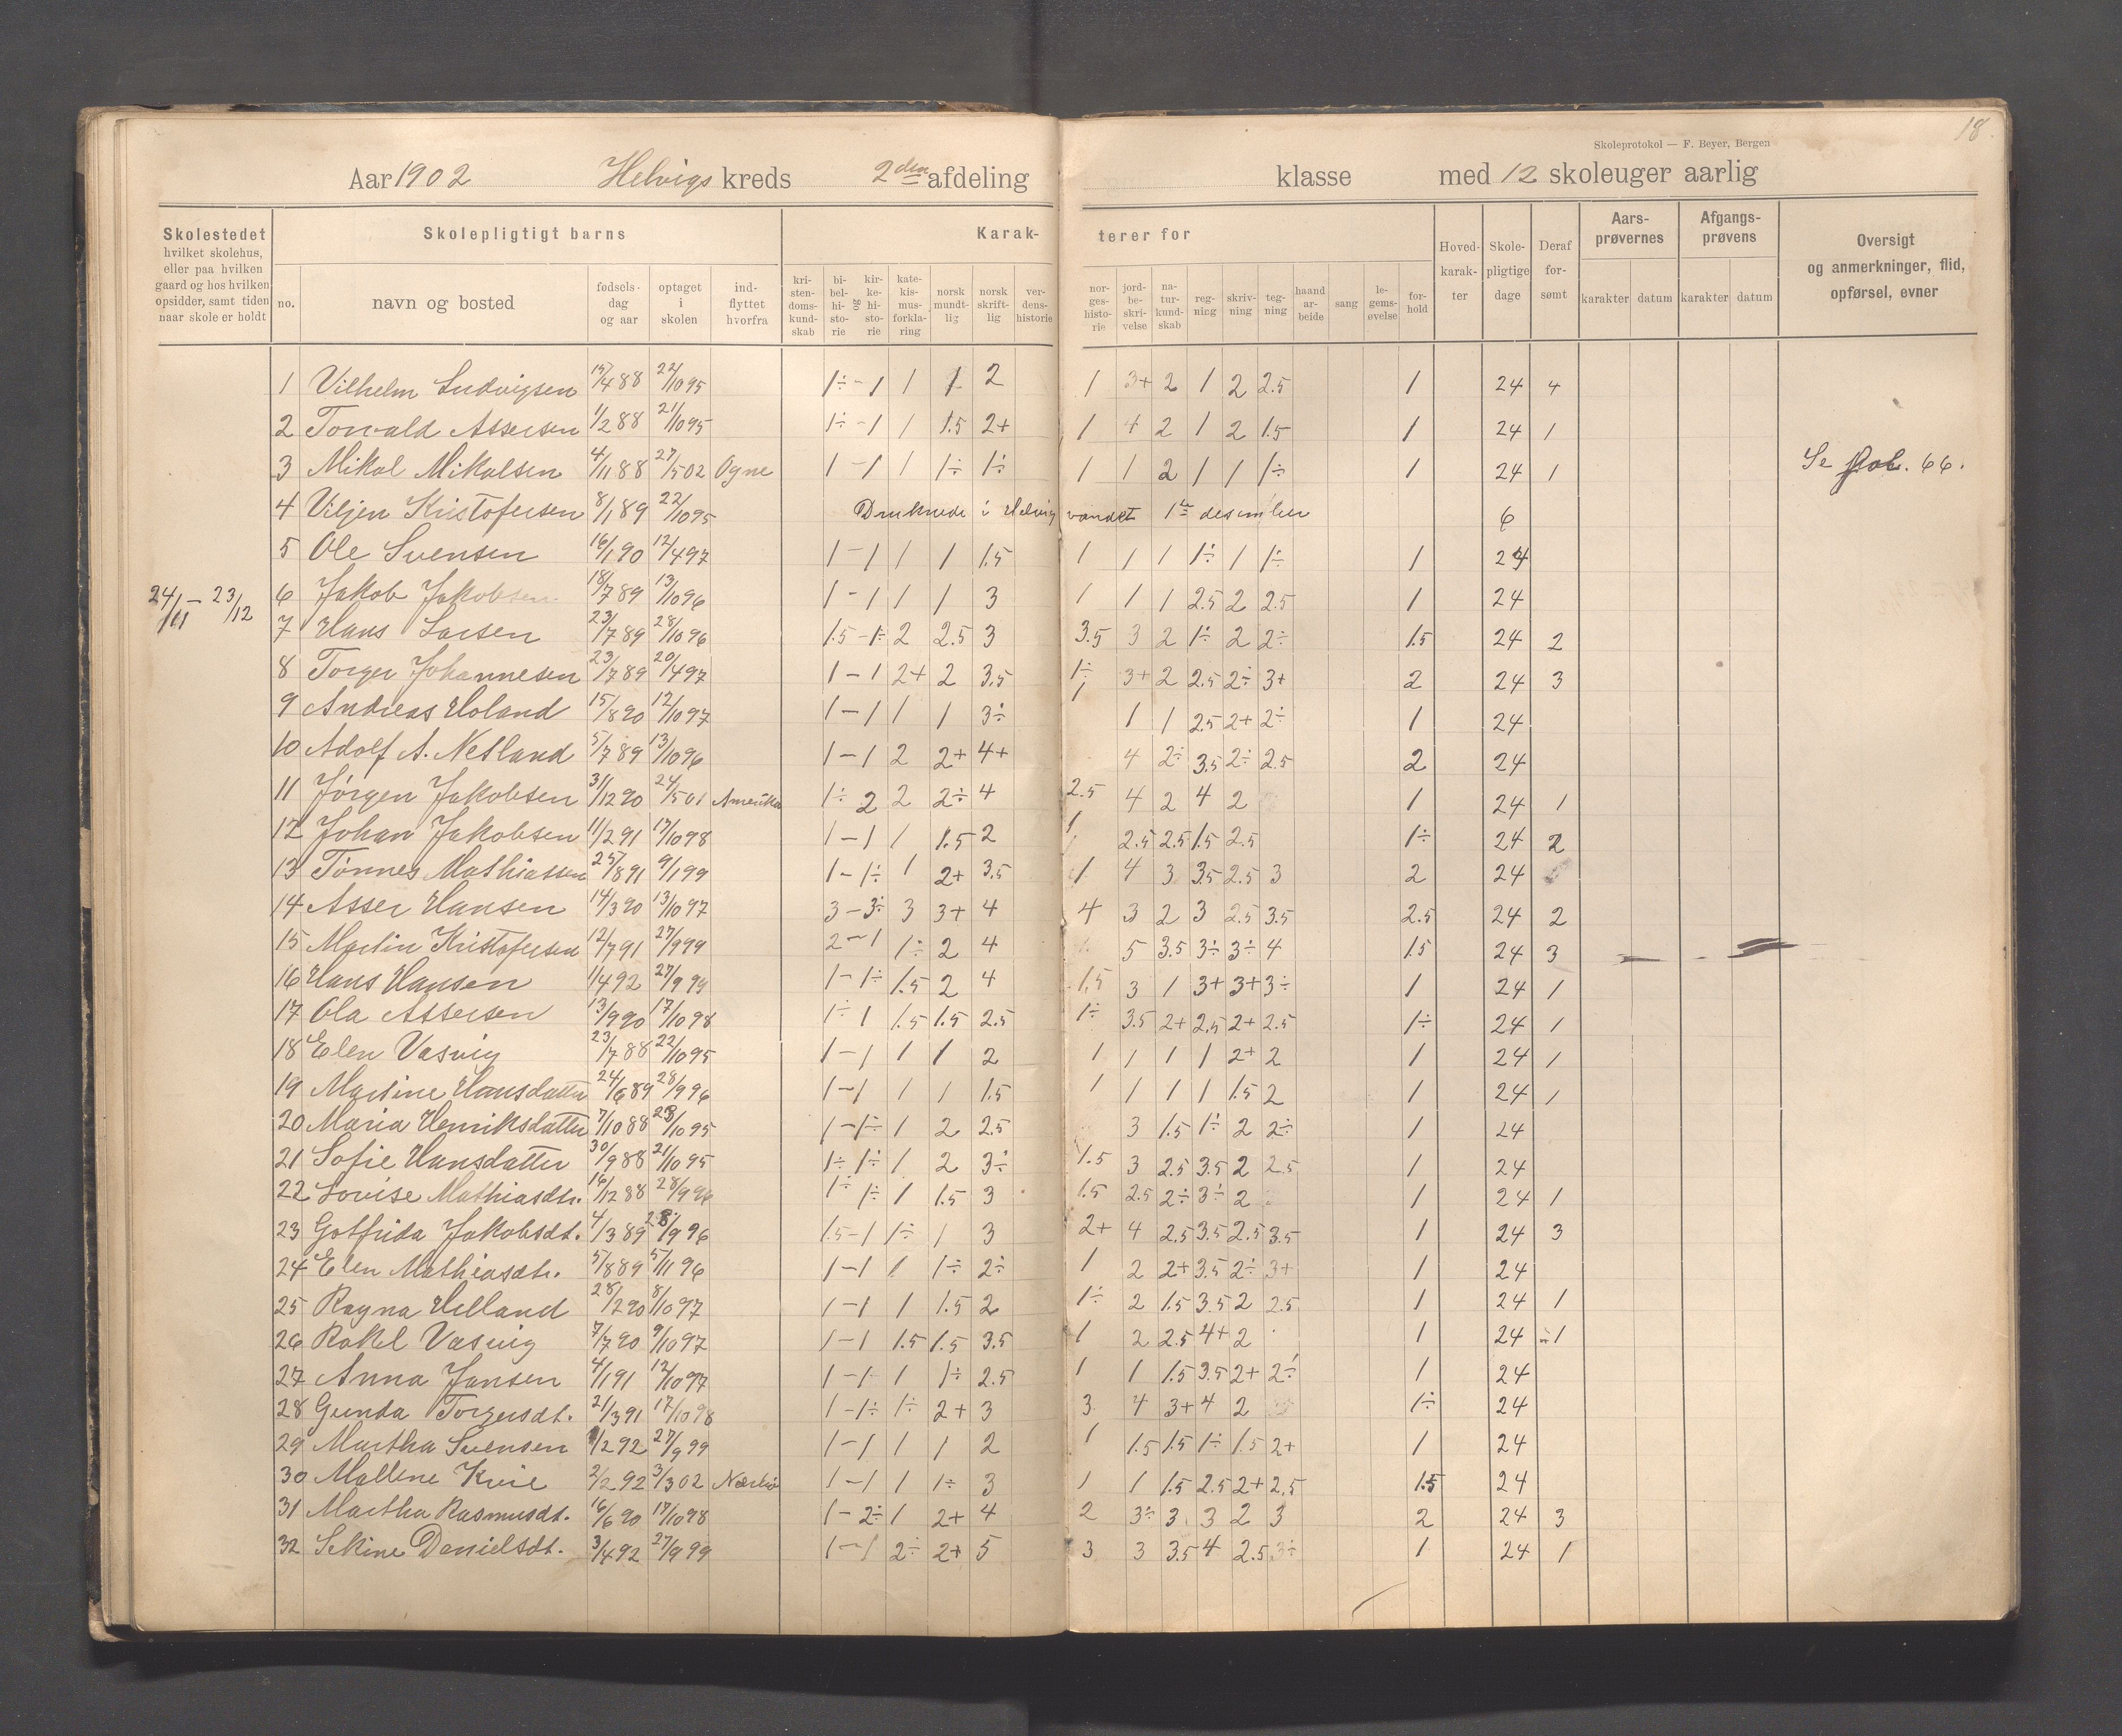 18.
Skoleprotokol — F. Beyer, Bergen
Aar 1902 Helvigs kreds 2den afdeling klasse med 12 skoleuger aarlig
Skolestedet hvilket skolehus, eller paa hvilken gaard og hos hvilken opsidder, samt tiden naar skole er holdt
Skolepligtigt barns
Karak- terer for
no. navn og bosted fødsels- dag og aar optaget i skolen ind- flyttet hvorfra
kri- sten- doms- kund- skab
bi- bel- hi- sto- rie og kir- ke- hi- sto- rie
kate- kis- mus- forkla- ring
norsk mundt- lig
norsk skrift- lig
ver- dens- historie
nor- ges- histo- rie
jord- be- skri- velse
na- tur- kund- skab
reg- ning
skriv- ning
teg- ning
haand ar- beide
sang
le- gems- øvelse
for- hold
Hoved- karak- ter
Skole- pligtige dage
Deraf for- sømt
Aars- prøvernes karakter datum
Afgangs- prøvens karakter datum
Oversigt og anmerkninger, flid, opførsel, evner
1 Vilhelm Ludvigsen 15/4 88 22/10 95 1÷ - 1 1 1 2 1 3+ 2 1 2 2.5 1 24 4
2 Torvald Assersen 1/2 88 21/10 95 1÷ - 1 1 1.5 2+ 1 4 2 1 2 1.5 1 24 1
3 Mikal Mikalsen 4/11 88 27/5 02 Ogne 1 - 1 1 1÷ 1÷ 1 1 2 1 1 1÷ 1 24 1 Se 66.
4 Viljen Kristofersen 8/1 89 22/10 95 Druknede i Helvigvandet 1te desember 6
5 Ole Svensen 16/1 90 12/4 97 1 - 1 1 1 1.5 1 1 1 1÷ 1 1÷ 1 24
24/11 - 23/12
6 Jakob Jakobsen 18/7 89 13/10 96 1 - 1 1 1 3 1 1 1 2.5 2 2.5 1 24
7 Hans Larsen 23/7 89 28/10 96 1.5 - 1÷ 2 2.5 3 3.5 3 2 1÷ 2 2÷ 1.5 24 2
8 Torger Johannesen 23/7 89 20/4 97 1 - 1 2+ 2 3.5 1÷ 3+ 2 2.5 2÷ 3+ 2 24 3
9 Andreas Holand 15/8 90 12/10 97 1 - 1 1 1 3÷ 1 1 1 2.5 2+ 2÷ 1 24
10 Adolf A. Netland 5/7 89 13/10 96 1 - 1 2 2+ 4+ 4 2÷ 3.5 2÷ 2.5 2 24
11 Jørgen Jakobsen 31/12 90 24/5 01 Amerika 1÷ 2 2 2÷ 4 2.5 4 2 4 2 1 24 1
12 Johan Jakobsen 11/2 91 17/10 98 1 - 1 1 1.5 2 1 2.5 2.5 1.5 2.5 1÷ 24 2
13 Tønnes Mathiassen 25/8 91 9/1 99 1 - 1÷ 1 2+ 3.5 1 4 3 3.5 2.5 3 2 24
14 Asser Hansen 14/3 90 13/10 97 3 - 3÷ 3 3+ 4 4 3 2 3 2.5 3.5 2.5 24 2
15 Martin Kristofersen 12/7 91 27/9 99 2 - 1 1÷ 2 4 5 3.5 3÷ 3÷ 4 1.5 24 3
16 Hans Hansen 1/4 92 27/9 99 1 - 1÷ 1.5 2 4 1.5 3 1 3+ 3+ 3÷ 1 24 1
17 Ola Assersen 13/9 90 17/10 98 1÷ 1 1.5 1.5 2.5 1÷ 3.5 2+ 2.5 2+ 2.5 1÷ 24 1
18 Elen Vasvig 23/7 88 22/10 95 1 - 1 1 1 2 1 1 1 1 2+ 2 1 24 1
19 Martine Hansdatter 24/6 89 28/9 96 1 - 1 1 1 1.5 1 1 1 1 1.5 2 1 24 1
20 Maria Henriksdatter 7/10 88 23/10 95 1 - 1÷ 1 2 2.5 3 1.5 1÷ 2 2÷ 1 24
21 Sofie Hansdatter 30/9 88 21/10 95 1÷ 1÷ 1 2 3÷ 1.5 3 2.5 3.5 2 2.5 1 24
22 Lovise Mathiasdtr. 16/12 88 28/9 96 1÷ 1÷ 1 1.5 3 1.5 2.5 2÷ 3÷ 2 1 24 1
23 Gotfrida Jakobsdt. 4/3 89 28/9 96 1.5 - 1 1÷ 1 3 2+ 4 2.5 3.5 2.5 3.5 1 24 3
24 Elen Mathiasdtr. 5/8 89 5/11 96 1 - 1 1 1÷ 2÷ 1 2 2+ 3.5 2÷ 3+ 1 24
25 Ragna Helland 28/2 90 8/10 97 1 - 1 1 1.5 2 1÷ 2 1.5 3.5 2 2.5 1 24 1
26 Rakel Vasvig 7/7 90 9/10 97 1 - 1 1.5 1.5 3.5 1 2 2.5 4+ 2 1 24 1
27 Anna Jansen 4/1 91 12/10 97 1 - 1 1 1÷ 2.5 1 1 1.5 3.5 2+ 2÷ 1 24
28 Gunda Torgersdt. 21/3 91 17/10 98 1 - 1÷ 1÷ 2+ 3 3 4 3+ 4 2 1÷ 24
29 Martha Svensen 1/2 92 27/9 99 1 - 1 1 1 2 1 1.5 1.5 1÷ 1.5 2+ 1 24
30 Mallene Kvie 2/2 92 3/3 02 Nærbø 1 - 1 1 1÷ 3 1 1 1.5 2.5 2+ 2.5 1.5 24
31 Martha Rasmusdt. 16/6 90 17/10 98 1 - 2÷ 1 2+ 4 2 3÷ 3 3 2 3 2 24 3
32 Sekine Danielsdt. 3/4 92 27/9 99 1 - 1 2÷ 2+ 5 3 3 3.5 4 2.5 3÷ 1 24 1